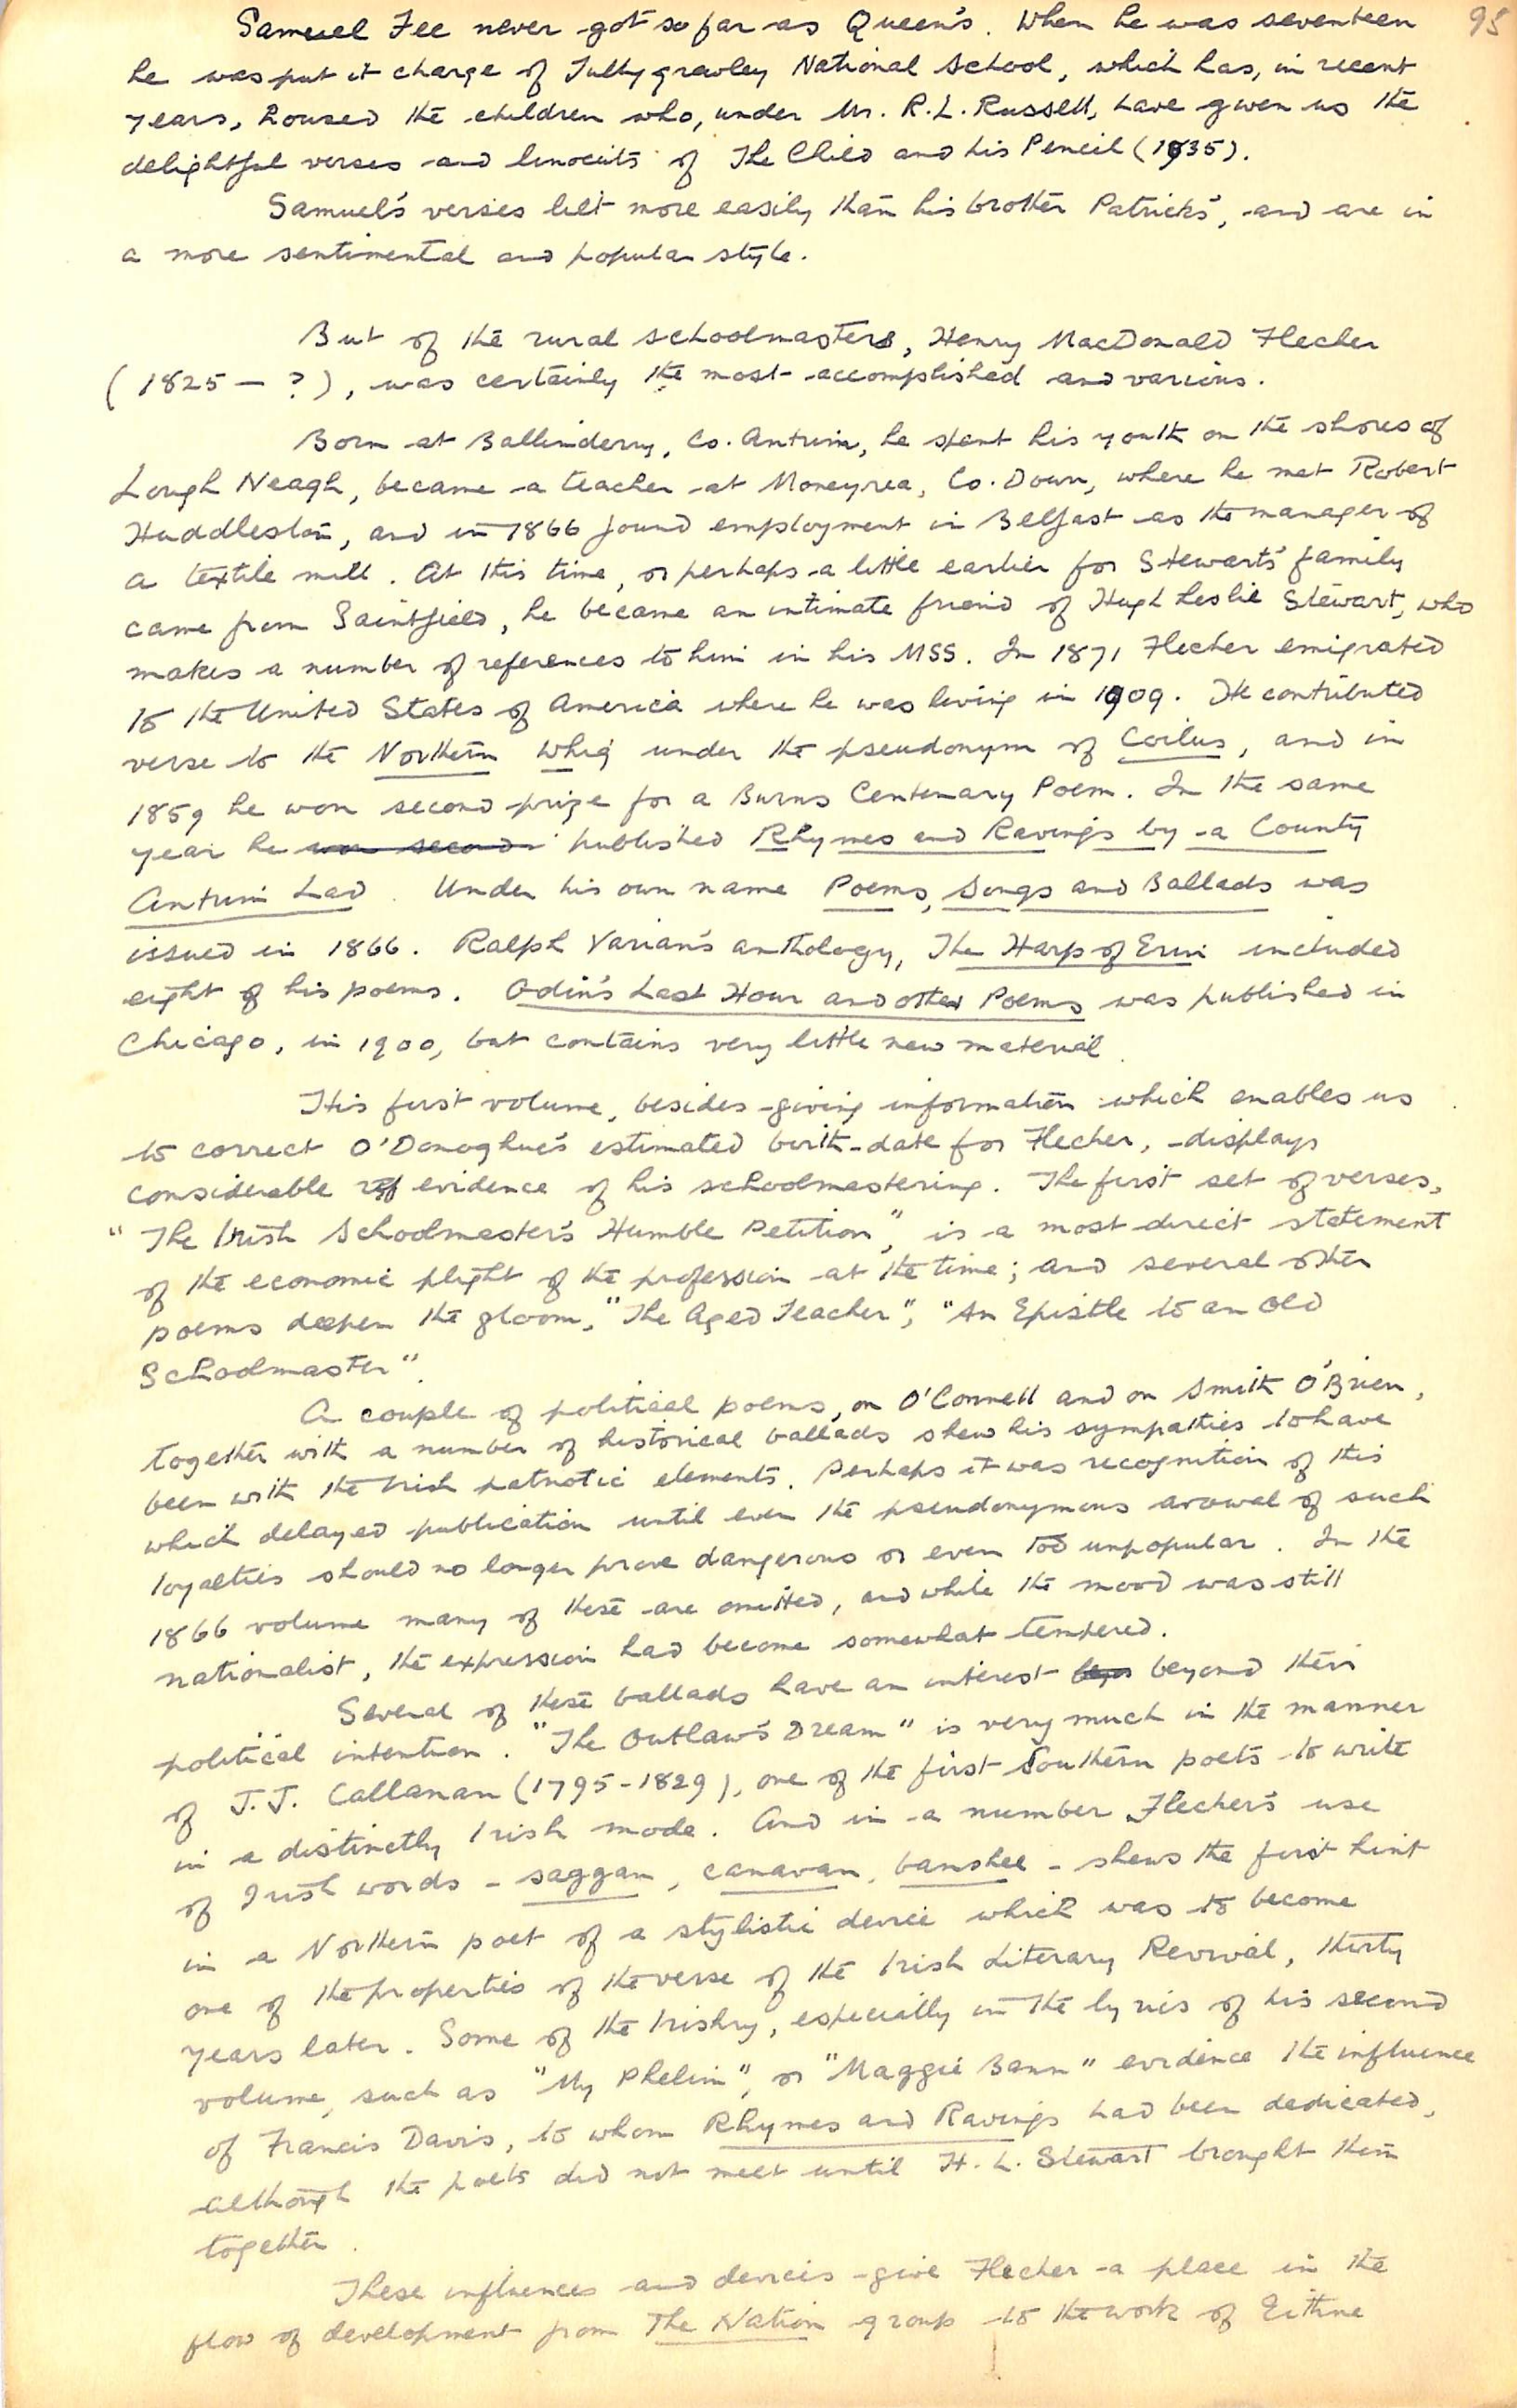 95
Samuel Fee never got so far as Queen's. When he was seventeen
he was put it charge of Tullygrawley National School, which has, in recent
years, housed the children who, under Mr. R.L. Russell, have given us the
delightful verses and linocuts of The Child and his Pencil (1935).
Samuel's verses lilt more easily than his brother Patrick's, and are in
a more sentimental and popular style.
But of the rural schoolmasters, Henry MacDonald Flecher
(1825 - ?), was certainly the most accomplished and various.
Born at Ballinderry, Co. Antrim, he spent his youth on the shores of
Lough Neagh, became a teacher at Moneyrea, Co. Down, where he met Robert
Huddleston, and in 1866 found employment in Belfast as the manager of
a textile mill. At this time, or perhaps a little earlier for Stewart's family
came from Saintfield, he became an intimate friend of Hugh Leslie Stewart, who
makes a number of references to him in his MSS. In 1871 Flecher emigrated
to the United States of America where he was living in 1909. He contributed
verse to the Northern Whig under the pseudonym of Coilus, and in
1859 he won second prize for a Burns Centenary Poem. In the same
year he won second published Rhymes and Ravings by a County
Antrim Lad. Under his own name Poems, Songs and Ballads was
issued in 1866. Ralph Varian's anthology, The Harp of Erin included
eight of his poems. Odin's Last Hour and other Poems was published in
Chicago, in 1900, but contains very little new material.
His first volume, besides giving information which enables us
to correct O'Donoghue's estimated birth-date for Flecher, displays
considerable evidence of his schoolmastering. The first set of verses,
"The Irish Schoolmaster's Humble Petition", is a most direct statement
of the economic plight of the profession at the time; and several other
poems deepen the gloom, "The Aged Teacher", "An Epistle to an Old
Schoolmaster".
A couple of political poems, on O'Connell and on Smith O'Brien,
together with a number of historical ballads shew his sympathies to have
been with the Irish patriotic elements. Perhaps it was recognition of this
which delayed publication until even the pseudonymous avowal of such
loyalties should no longer prove dangerous or even too unpopular. In the
1866 volume many of these are omitted, and while the mood was still
nationalist, the expression had become somewhat tempered.
Several of these ballads have an interest beyond their
political intention. "The Outlaw's Dream" is very much in the manner
of J.J. Callanan (1795-1829), one of the first Southern poets to write
in a distinctly Irish mode. And in a number Flecher's use
of Irish words - saggan, canavan, banshee - shews the first hint
in a Northern poet of a stylistic device which was to become
one of the properties of the verse of the Irish Literary Revival, thirty
years later. Some of the Irishry, especially in the lyrics of his second
volume, such as "My Phelim", or "Maggie Bann" evidence the influence
of Francis Davis, to whom Rhymes and Ravings had been dedicated,
although the poets did not meet until H. L. Stewart brought them
together.
These influences and devices give Flecher a place in the
flow of development from The Nation group to the work of Eithne